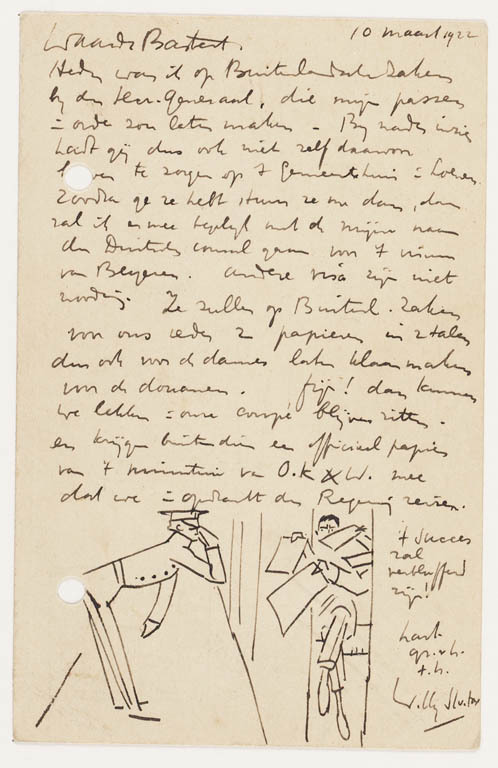 10 maart 1922
Waarde Bastert.
Heden was ik op Buitenlandsche Zaken
bij den secr-Generaal, die mijn passen
in orde zou laten maken - Bij nader inzien
hadt gij dus ook niet zelf daarvoor
te zorgen op 't Gemeentehuis in Loenen.
Zoodra ge ze hebt stuur ze me dan, dan
zal ik er mee tegelijk met de mijne naar
den Duitsche consul gaan voor 't visum
van Beyeren. Andere visa zijn niet
noodig. Ze zullen op Buitenl. Zaken
voor ons ieder 2 papieren in 2 talen
dus ook voor de dames laten klaar maken
voor de douanen. fijn! dan kunnen
we lekker in onze coupé blijven zitten.
en krijgen buitendien een officieel papier
van 't ministerie van O.K & W. mee
dat we in opdracht der Regering reizen.
't succes
zal
verbluffend
zijn!
hart.
gr. v. h.
t. h.
Willy Sluiter